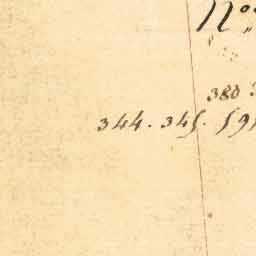 No
380
344. 345. 591